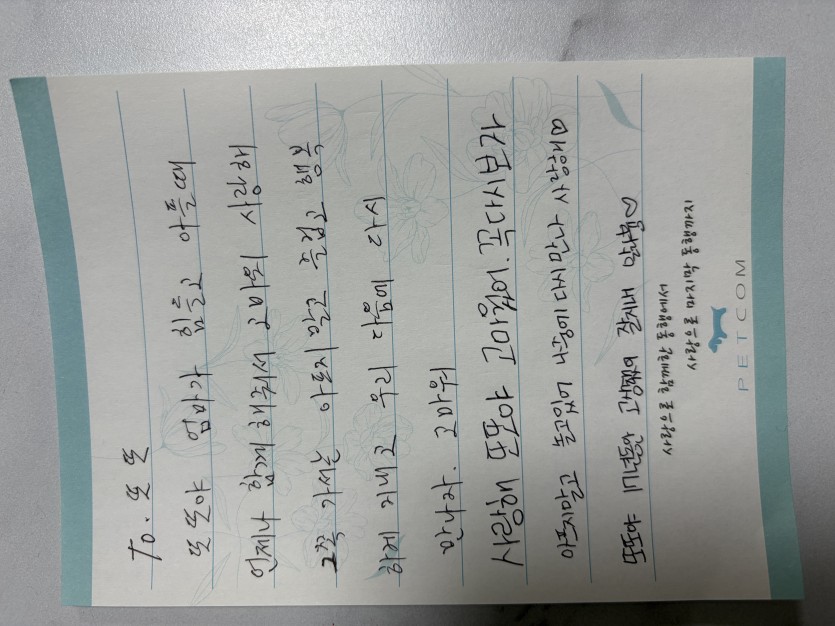 To. 또또
또또야 엄마가 힘들고 아플때
언제나 함께해줘서 고마워 사랑해
그쪽 가서는 아프지 말고 즐겁고 행복
하게 지내고 우리 다음에 다시
만나자. 고마워
사랑해 또또야 고마웠어. 꼭다시보자
아프지말고 놀고있어 나중에 다시만나 사랑해♡
또또야 17년동안 고생했어 잘지내 안녕♡
사랑으로 함께한 동물에게서
사랑으로 마지막 동행까지
PETCOM